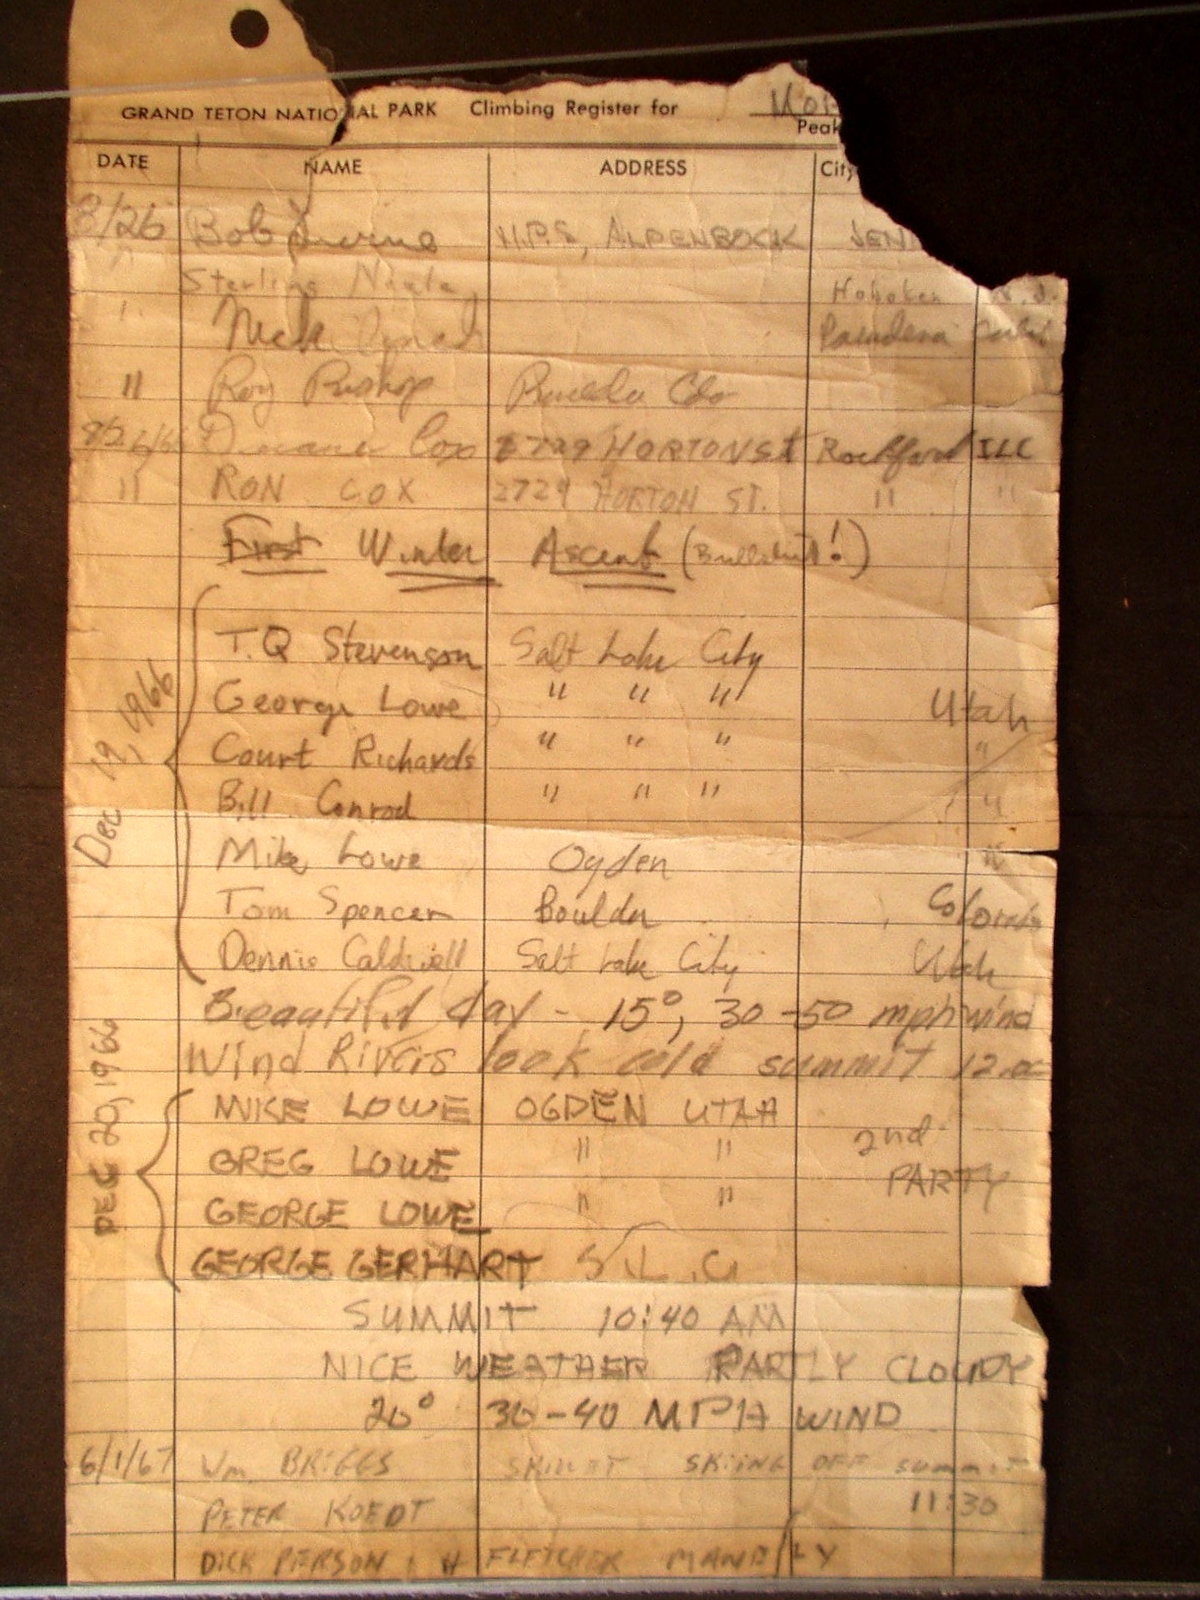 GRAND TETON NATIONAL PARK Climbing Register for
Peak
DATE NAME ADDRESS City
8/26 Bob Irvine N.P.S, ALPENBOCK JEN
Sterling Neale Hoboken N.J.
" Nick Pasadena Calif
" Roy Bishop Colo
8/26/66 Cox 2729 HORTON St Rockford ILL
" RON COX 2729 HORTON ST. " "
First Winter Ascent (Bullshit!)
Dec 19, 1966
T.Q Stevenson Salt Lake City
George Lowe " " " Utah
Court Richards " " " "
Bill Conrod " " " "
Mike Lowe Ogden "
Tom Spencer Boulder Colorado
Dennis Caldwell Salt Lake City Utah
Beautiful day - 15°, 30-50 mph wind
Wind Rivers look cold summit 12:00
DEC 20, 1966
MIKE LOWE OGDEN UTAH
GREG LOWE " " 2nd PARTY
GEORGE LOWE " "
GEORGE GERHART S.L.C.
SUMMIT 10:40 AM
NICE WEATHER PARTLY CLOUDY
20° 30-40 MPH WIND
6/1/67 Wm. BRIGGS SKIING OFF summit
PETER KOEDT 11:30
DICK PERSON FLETCHER MANLY